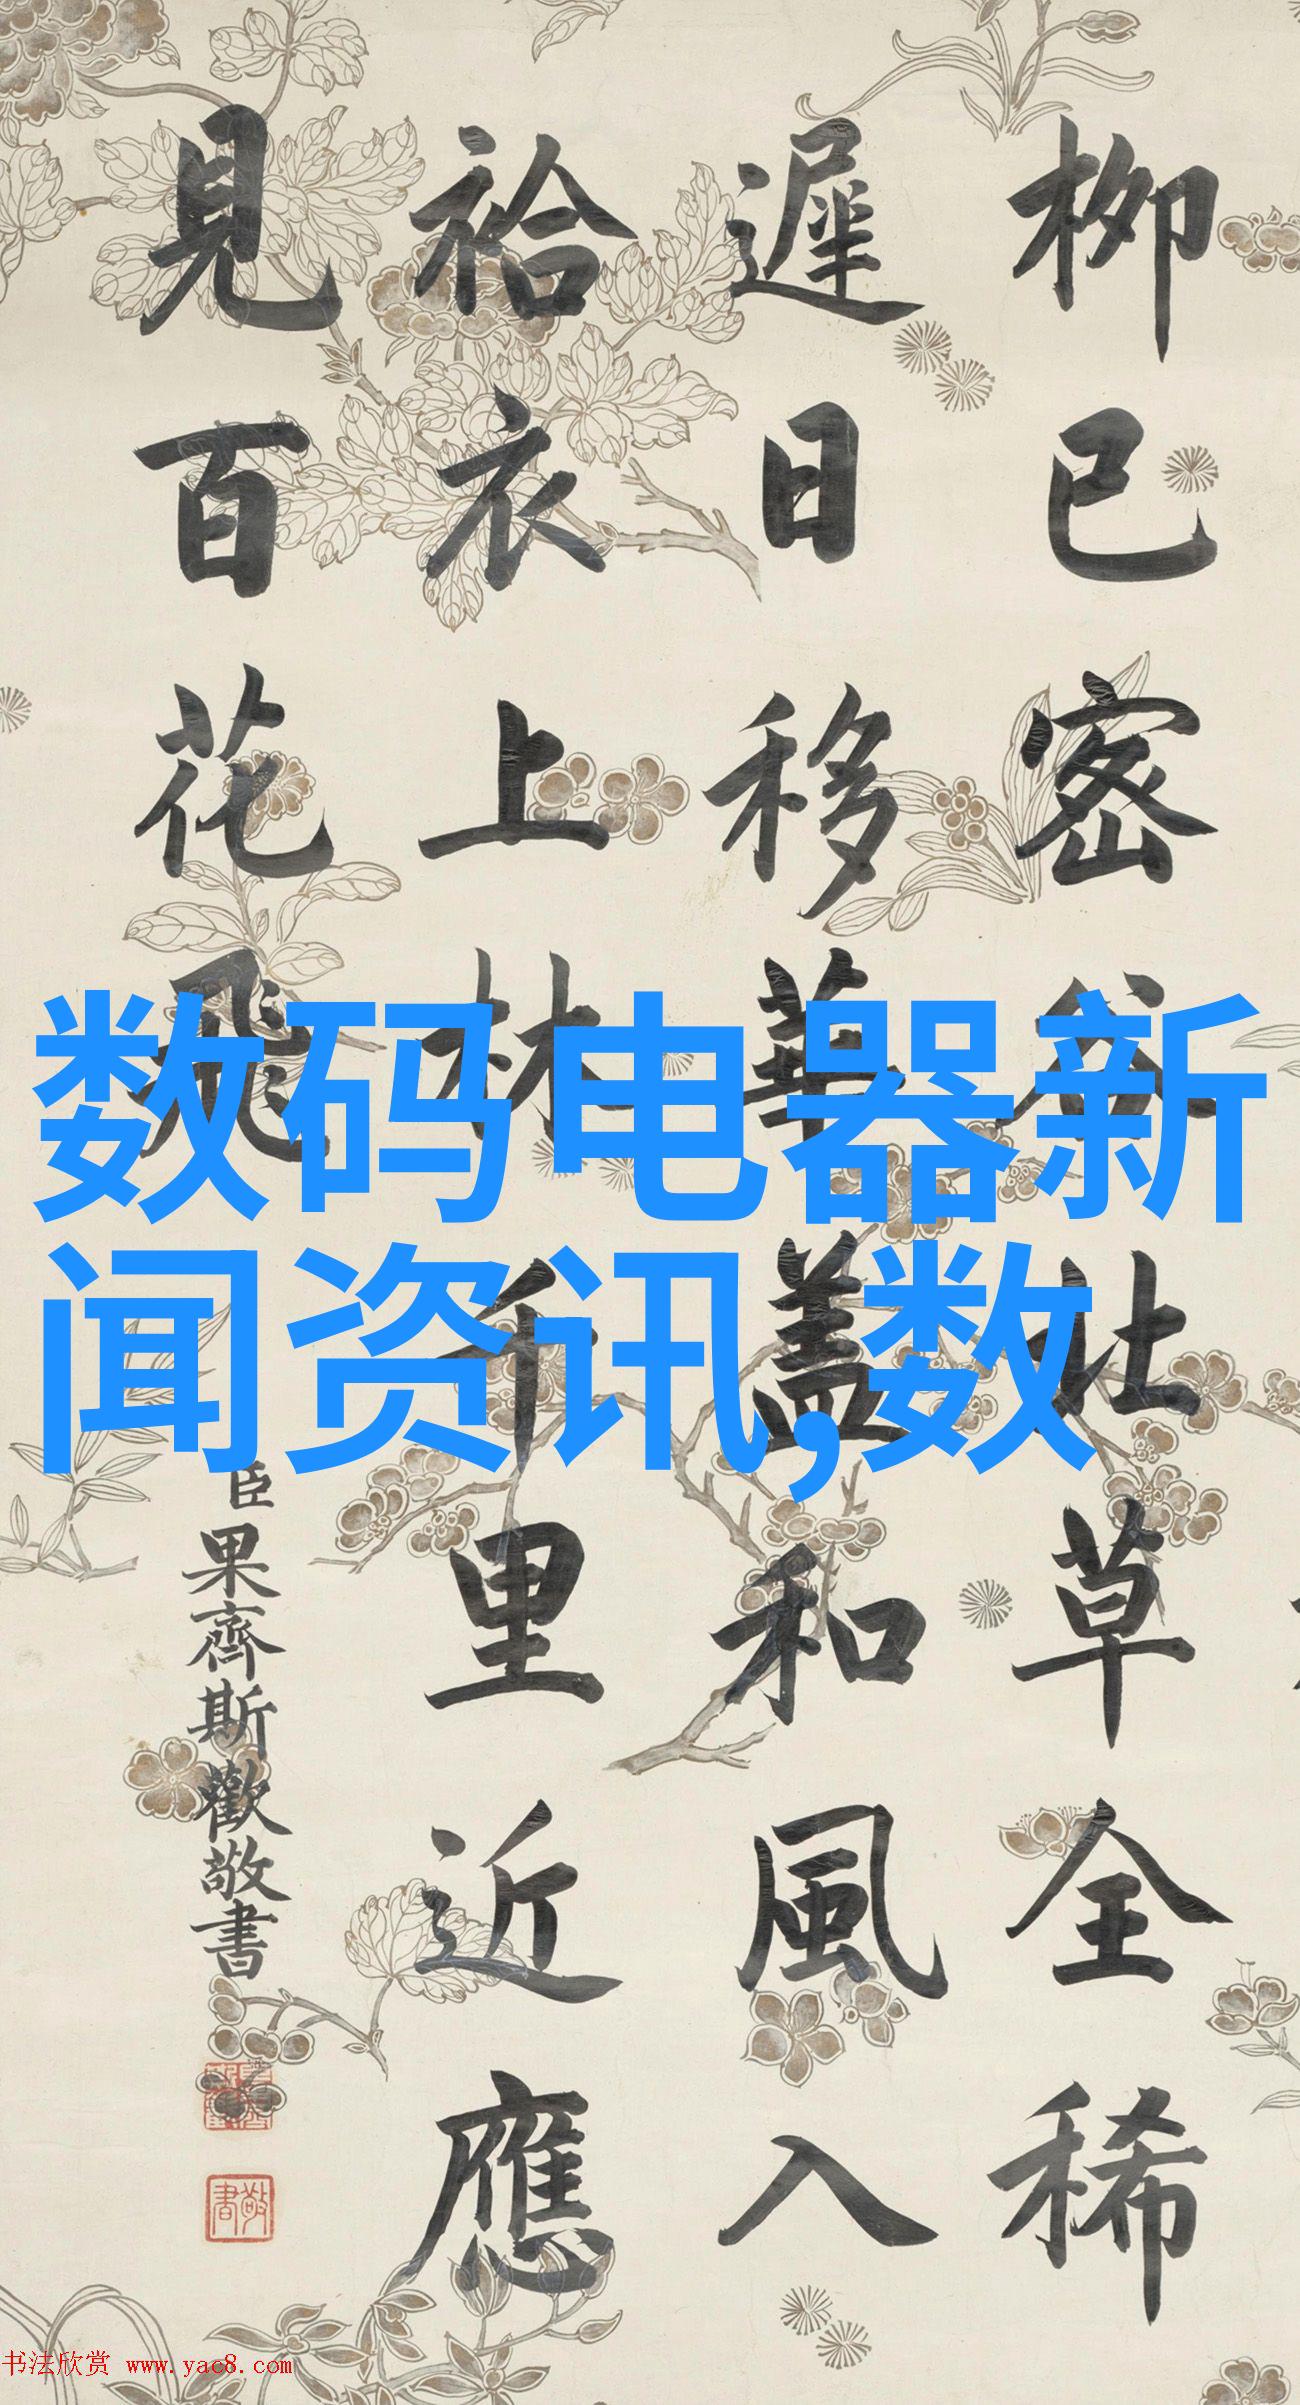 柳已密草全稀
遲日移華盖和風入
袷衣上林千里近應
見百花飛
臣果齊斯歡敬書
敬書
数码电器新
闻资讯,数
书法欣赏 www.yac8.com